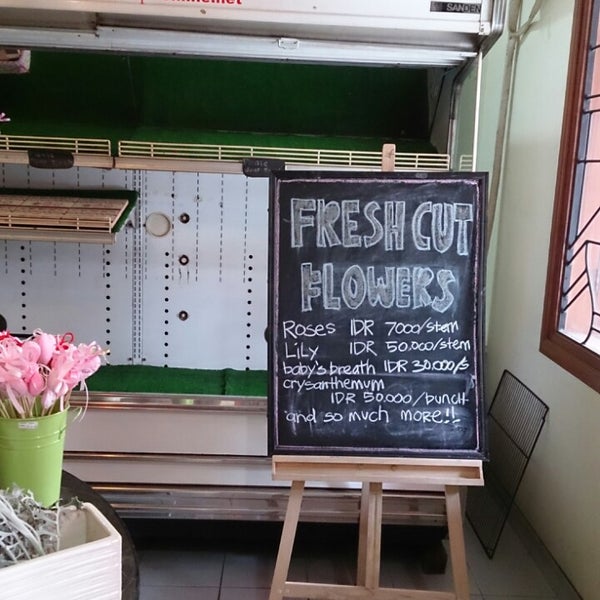 SANDEN
FRESH CUT
FLOWERS
Roses IDR 7000/stem
LiLy IDR 50.000/stem
baby's breath IDR 30.000/s
crysanthemum
IDR 50.000/bunch
and so much more!!